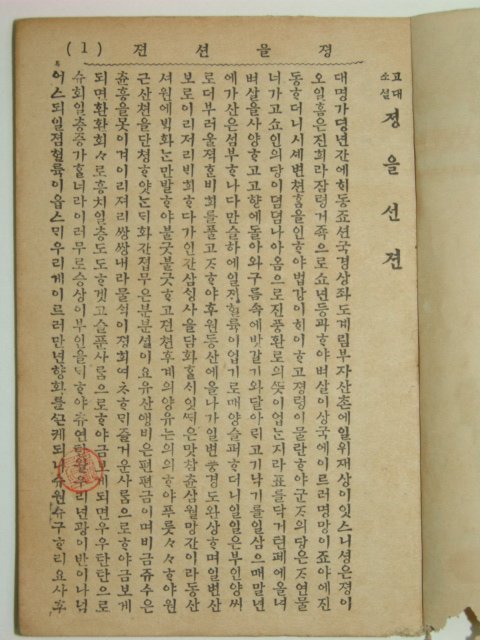 (1) 뎐션을졍
고대
소셜
졍을션젼
대명가뎡년간에히동죠션국경상좌도계림부자산촌에일위재상이잇스니셩은졍이
오일홈은진희라잠령거족으로쇼년등과ᄒᆞ야벼살이상국에이르러명망이죠야에진
동ᄒᆞ더니시셰변쳔홈을인ᄒᆞ야법강이히이ᄒᆞ고졍령이물란ᄒᆞ야군ᄌᆞ의당은ᄌᆞ연물
너가고쇼인의당이뎜뎜나아옴으로진풍환로의ᄯᅳᆺ이업는지라표를닥거런폐에올녀
벼살을사양ᄒᆞ고고향에돌아와구름속에밧갈기와달아ᄅᆡ고기낙기를일삼으매말년
에가산은셤부ᄒᆞ나다만슬하에일뎜혈륙이업기로매양슬퍼ᄒᆞ더니일일은부인양씨
로더부러울젹ᄒᆞᆫ비회를풀고ᄌᆞᄒᆞ야후원동산에올나가일변풍경도완상ᄒᆞ며일변산
보로이리저리ᄇᆡ회ᄒᆞ다가인간삼상사을담화ᄒᆞᆯᄉᆡ잇ᄯᆡ은맛참츈삼월망간이라동산
셔원에ᄇᆡᆨ화ᄂᆞᆫ만발ᄒᆞ야불긋불긋ᄒᆞ고젼쳔후계의양유ᄂᆞᆫ의의ᄒᆞ야푸릇々々ᄒᆞ야원
근산쳔을단쳥ᄒᆞ얏ᄂᆞᆫᄃᆡ화간졉무은분분셜이요유상ᄋᆡᆼ비은편편금이며비금쥬수은
츈흥을못이겨이리져리쌍쌍내라물ᄉᆡᆨ이졍희여ᄎᆞᄒᆞᄆᆡ즐거운사ᄅᆞᆷ으로ᄒᆞ야금보게
되면환환희々로흥치일층도도ᄒᆞ겟고슬푼사ᄅᆞᆷ으로ᄒᆞ야금보게되면우우탄탄으로
슈회일층증가ᄒᆞᆯ너라이러무로승상이부인을ᄃᆡᄒᆞ야츄연탄왈우리년광이반이나넘
어스되일졈혈륙이읍스ᄆᆡ우리게이르러만년향화를ᄭᅳᆫ케되니수원슈구ᄒᆞ리요사후